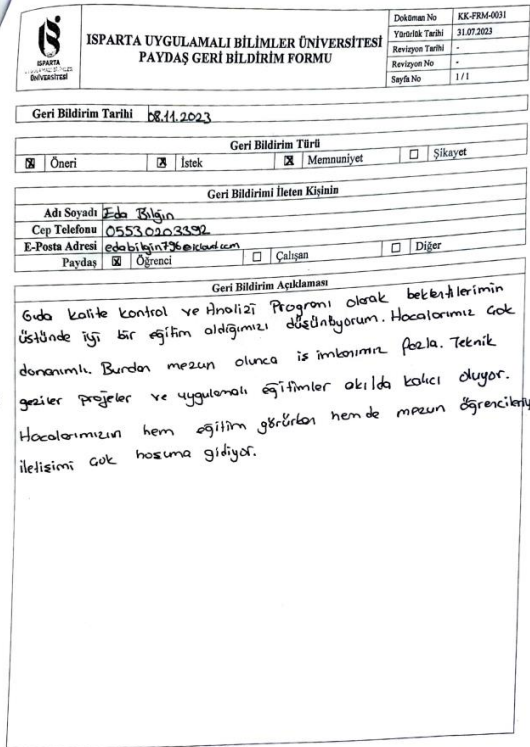 ISPARTA
ÜNİVERSİTESİ
ISPARTA UYGULAMALI BİLİMLER ÜNİVERSİTESİ
PAYDAŞ GERİ BİLDİRİM FORMU
Doküman No KK-FRM-0031
Yürürlük Tarihi 31.07.2023
Revizyon Tarihi -
Revizyon No -
Sayfa No 1 / 1
Geri Bildirim Tarihi 08.11.2023
Geri Bildirim Türü
☒ Öneri ☒ İstek ☒ Memnuniyet ☐ Şikayet
Geri Bildirimi İleten Kişinin
Adı Soyadı Eda Bilgin
Cep Telefonu 05530203392
E-Posta Adresi edabilgin796@icloud.com
Paydaş ☒ Öğrenci ☐ Çalışan ☐ Diğer
Geri Bildirim Açıklaması
Gıda kalite kontrol ve Analizi Programı olarak beklentilerimin
üstünde iyi bir eğitim aldığımızı düşünüyorum. Hocalarımız çok
donanımlı. Burdan mezun olunca iş imkanımız fazla. Teknik
geziler projeler ve uygulamalı eğitimler akılda kalıcı oluyor.
Hocalarımızın hem eğitim görürken hem de mezun öğrencileriy
iletişimi çok hoşuma gidiyor.